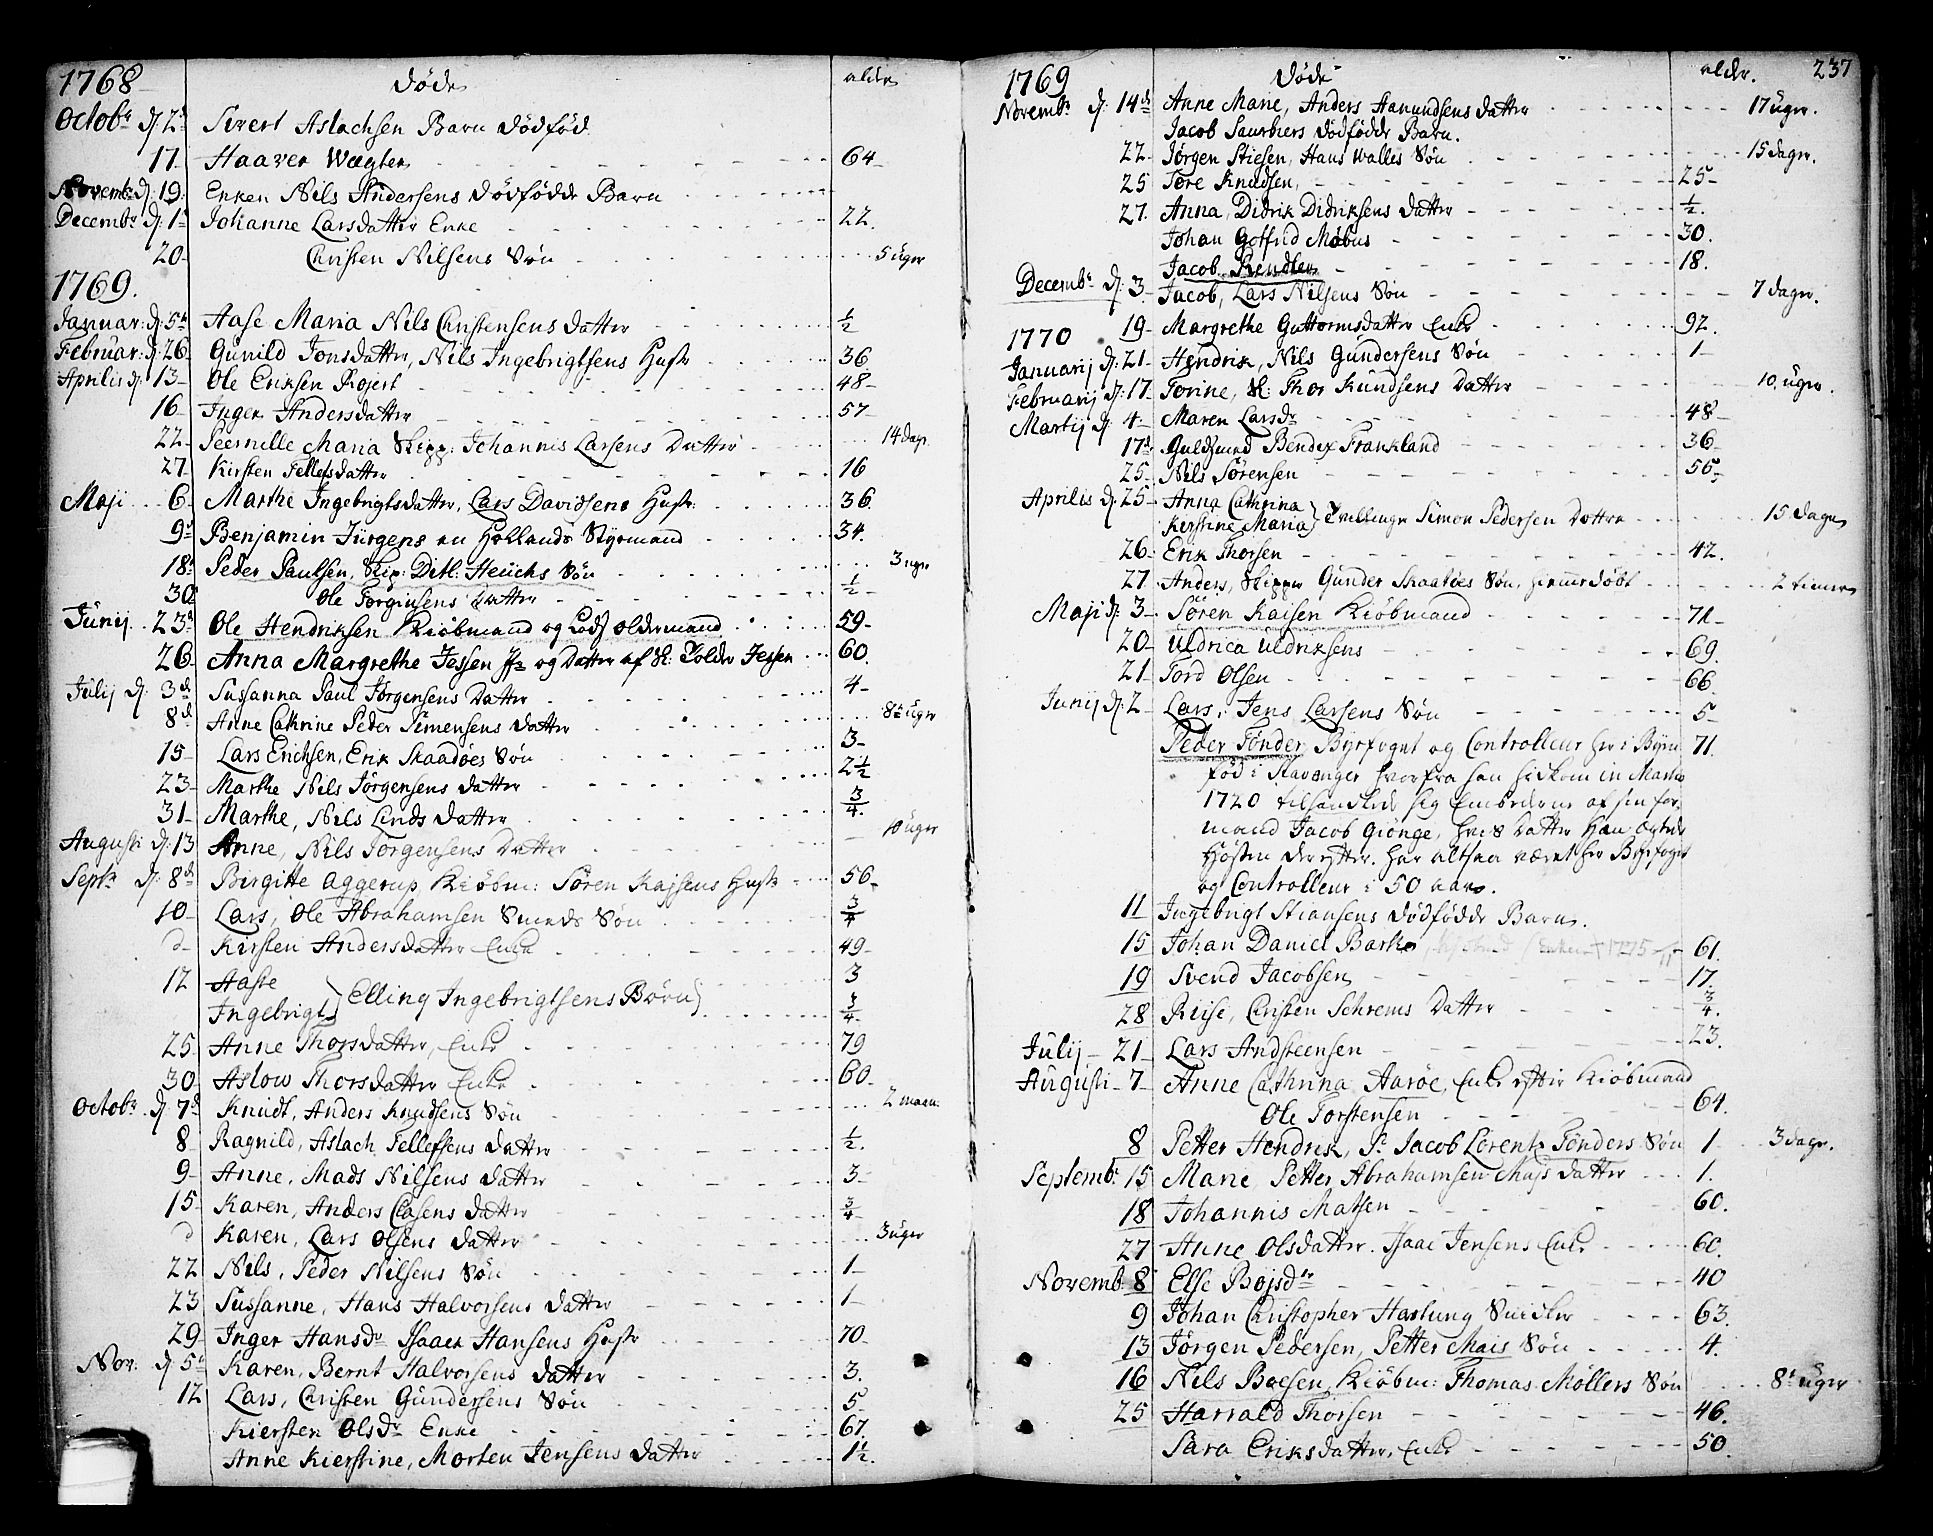 1768 Døde alder
Octobr d. 2d Sivert Aslachsen Barn dødfød
17 Haaver Wægter 64
Novembr d. 19 Enken Nils Andersens dødfødde Barn
Decembr d. 1 Johanne Larsdatter Enke 22.
20 Christen Nilsens Søn 5 uger
1769.
Januar: d. 5t Aase Maria Nils Christensens datter ½
Februar: d. 26 Gunild Jonsdatter, Nils Ingebrigtsens Hustr 36
Aprilis d. 13 Ole Eriksen Rojert 48
16 Inger Andersdatter 57
22 Peernille Maria Skipp: Johannis Larsens Datter 14 dag.
27 Kirsten Tellefsdatter 16
Maji 6 Marthe Ingebrigtsdatter, Lars Davidsens Hustr: 36
9 Benjamin Jürgens en Hollands Styrmand 34.
18 Peder Paulsen, Skip: Ditl: Heuchs Søn 3 uger
30 Ole Torgiusens Datter ½
Junij 23d Ole Hendriksen Kiøbmand og Lods Oldermand 59
26 Anna Margrethe Jessen Jfr og Datter af H: Tolder Jessen 60
Julij d. 3d Sussanna Paul Jørgensens Datter 4
8d Anne Cathrine Peder Simensens datter 8 uger
15 Lars Erichsen, Erik Skaadøes Søn 3
23 Marthe Nils Jörgensens datter 2½
31 Marthe, Nils Linds datter ¾
Augusti d. 13 Anne, Nils Törgensens Datter 10 uger
Septr d. 8d Birgitte Aggerup, Kiøbm: Søren Kajsens Hustr 56
10 Lars, Ole Abrahamsen Smeds Søn ¾
d Kirsten Andersdatter Enke 49
12 Aasse 3
Ingebrigt } Elling Ingebrigtsens Børn ¾
25 Anne Thorsdatter, Enke 79
30 Aslow Thorsdatter Enke 60
Octobr d. 7d Knudt, Anders Knudsens Søn 2 maan:
8 Ragnild, Aslach Tellefsens datter ½.
9 Anne, Mads Nilsens datter 3
15 Karen, Anders Clasens datter ¾
d Karen, Lars Olsens datter 3 uger
22 Nils, Peder Nilsens Søn 1
23 Sussanne, Hans Halvorsens datter 1
29 Inger Hansdr Isaac Hansens Hustr 70
Nov: d. 5t Karen, Bernt Halvorsens datter 3.
12 Lars, Christen Gundersens Søn 5
Kiersten Olsdr Enke 67.
Anne Kierstine, Morten Jensens datter 1½.
1769 Døde alder. 237
Novembr d. 14de Anne Marie, Anders Aamundsens datter 17 uger.
Jacob Saurbiers dødfødde Barn.
22 Jørgen Stiesen, Hans Walles Søn 15 dager.
25 Tore Knudsen, 25
27 Anna, Didrik Didriksens datter ½.
Johan Gotfrid Møbus 30.
Jacob Kendler 18.
Decembr d. 3 Jacob, Lars Nilsens Søn 7 dager.
19 Margrethe Guttormsdatter Enke 92.
1770
Januarij d. 21 Hendrik, Nils Gundersens Søn 1
Februarij d. 17 Torine, H: Thor Kundsens Datter 10 uger.
Martij d. 4 Maren Larsdr 48
17d Guldsmed Bendix Frankland 36
25 Nils Sørensen 55
Aprilis d. 25 Anna Cathrina
Kirstine Maria } Tvillinger Simon Pedersen Døttre 15 dager
26 Erik Thorsen 42.
27 Anders, Skipper Gunder Skaatøes Søn, hiemmedøbt 2 timer
Maji d. 3 Søren Kaisen Kiøbmand 71
20 Uldrica Uldriksens 69.
21 Tord Olsen 66
Junij d. 2 Lars, Jens Larsens Søn 5
Peder Tønder, Byefoget og Controlleur her i Byen 71.
fød i Stavanger hvorfra han hidkom in Martio
1720 tilhandlede sig Embederne af sin for-
mand Jacob Giønge, hvis Datter Han ægtede
Høsten derefter. har altsaa været her Byefoget
og Controlleur i 50 aar.
11 Ingebrigt Stiansens dødfødde Barn.
15 Johan Daniel Barth 61.
19 Svend Jacobsen 17.
28 Reise, Christen Schrems Datter ¾.
Julij 21 Lars Andsteensen 23.
Augusti 7 Anne Cathrina Aarøe, Enke efter Kiøbmand
Ole Torstensen 64.
8 Petter Hendrik, Sr Jacob Lorentz Tønders Søn 1 3 dager.
Septembr 15 Marie Petter Abrahamsen Majs datter 1.
18 Johannis Matsen 60.
27 Anne Olsdatter. Isaac Jensens Enke 60.
Novemb: 8 Else Bojsdtr 40
9 Johan Christopher Hartung Snedker 63.
13 Jørgen Pedersen, Petter Mais Søn 4.
16 Nils Boesen, Kiøbm: Thomas Møllers Søn 8 uger
25 Harrald Thorsen 46.
Sara Eriksdatter, Enke 50.